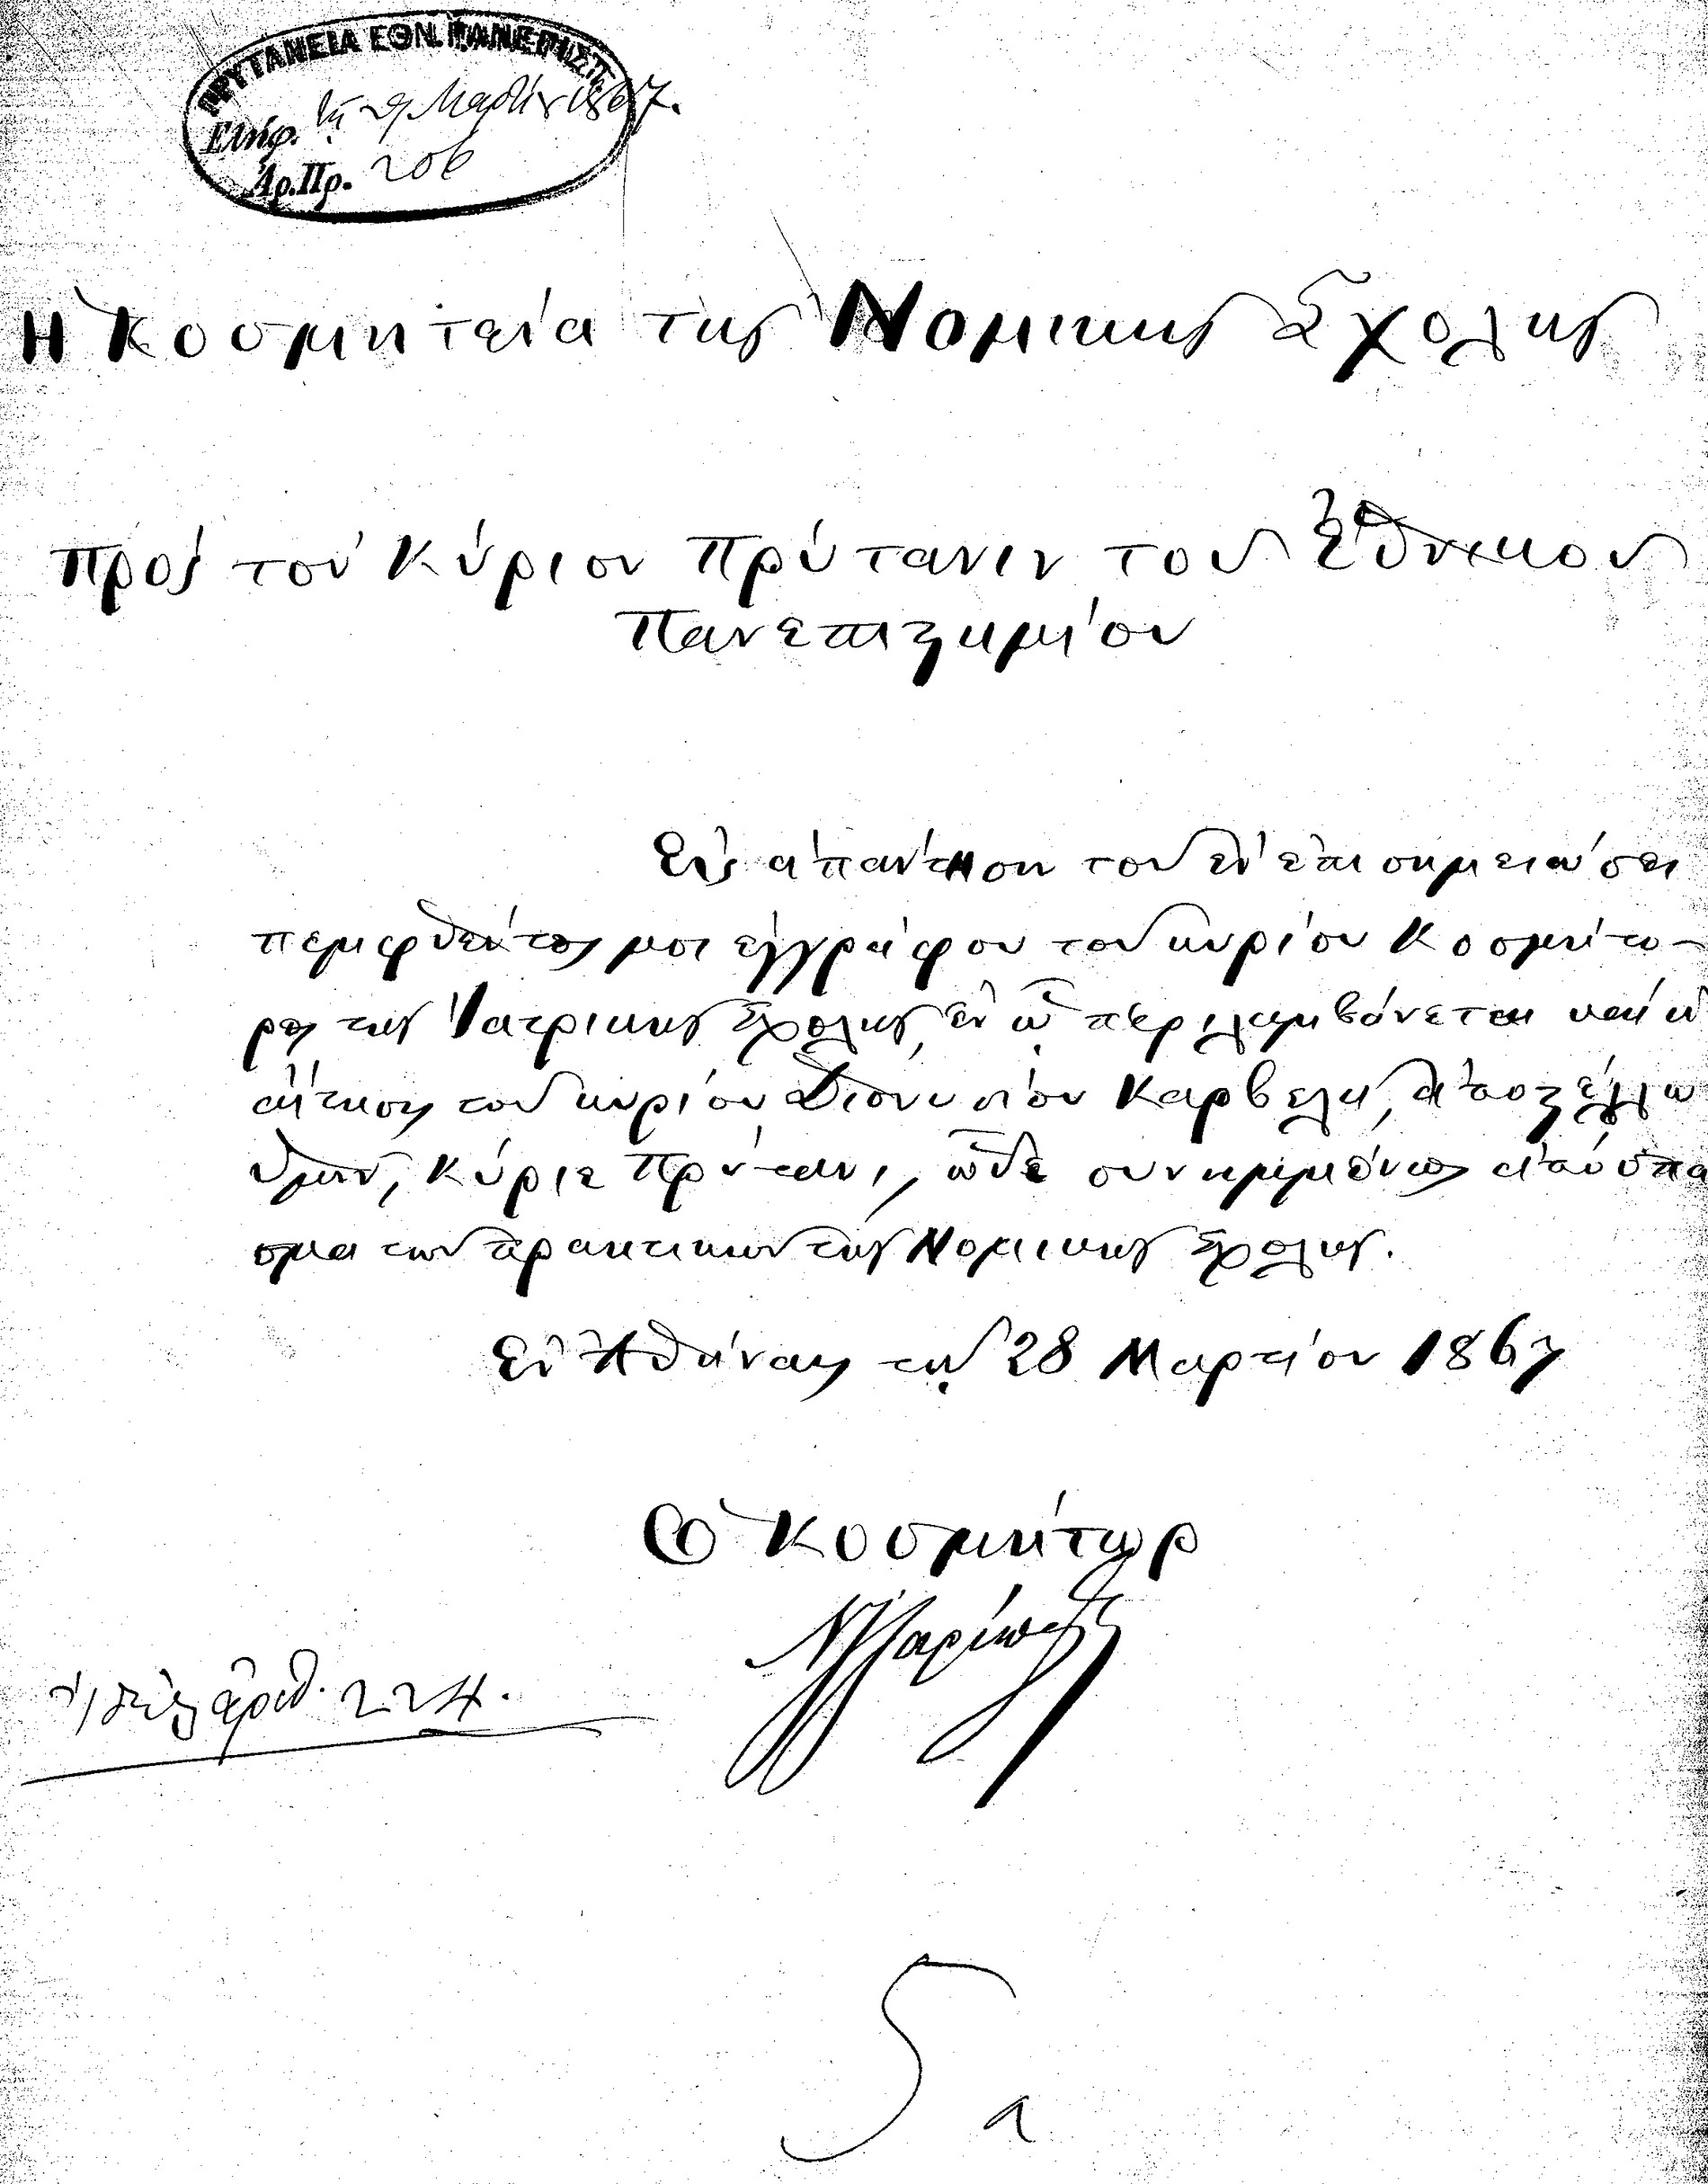 ΠΡΥΤΑΝΕΙΑ ΕΘΝ. ΠΑΝΕΠΙΣΤ.
Ελήφ. τῇ 29 Μαρτίου 1867.
Ἀρ. Πρ. 206
Ἡ Κοσμητεία της Νομικης Σχολης
Προς τον Κύριον Πρύτανιν του Ἐθνικου
Πανεπιστημίου
Εἰς ἀπάντησιν του ἐν ἐπισημειώσει
πεμφθέντος μοι ἐγγράφου του κυρίου Κοσμήτο-
ρος της Ἰατρικης Σχολης, ἐν ᾧ περιλαμβάνεται και ἡ
αἴτησις του κυρίου Διονυσίου Καρβελη, ἀποστέλλω
ὑμιν, Κύριε Πρύτανι, ὧδε συνημμένως ἀπόσπα
σμα των πρακτικων της Νομικης Σχολης.
Ἐν Ἀθήναις τῃ 28 Μαρτίου 1867
Ὁ Κοσμήτωρ
ἀριθ. 224.